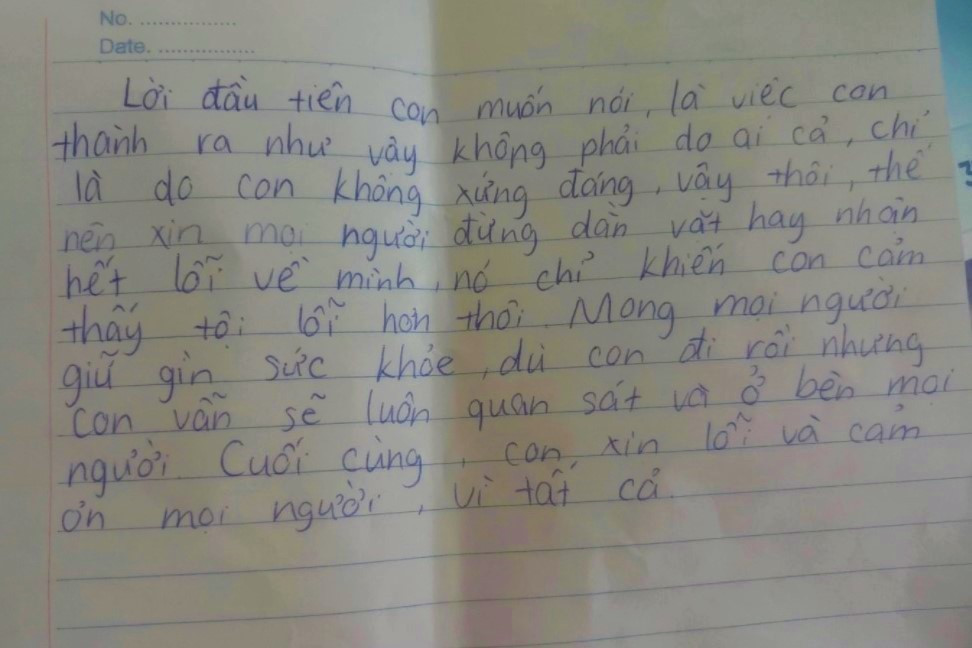 No. ..................
Date. ..................
Lời đầu tiên con muốn nói, là việc con
thành ra như vậy không phải do ai cả, chỉ
là do con không xứng đáng, vậy thôi, thế
nên xin mọi người đừng dằn vặt hay nhận
hết lỗi về mình, nó chỉ khiến con cảm
thấy tội lỗi hơn thôi. Mong mọi người
giữ gìn sức khỏe, dù con đi rồi nhưng
con vẫn sẽ luôn quan sát và ở bên mọi
người. Cuối cùng, con xin lỗi và cảm
ơn mọi người, vì tất cả.